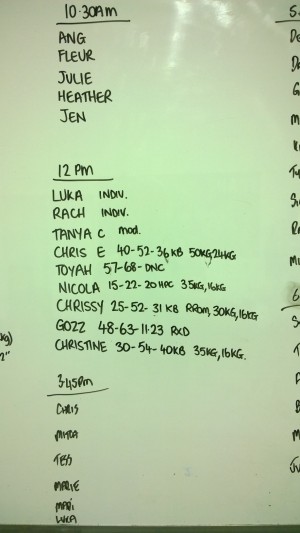 10:30am
ANG
FLEUR
JULIE
HEATHER
JEN
12 PM
LUKA INDIV.
RACH INDIV.
TANYA C mod.
CHRIS E 40-52-36 KB 50KG, 24KG
TOYAH 57-68-DNC
NICOLA 15-22-20 HPC 35KG, 16KG
CHRISSY 25-52-31 KB RROM, 30KG, 16KG
GOZZ 48-63-11:23 RXD
CHRISTINE 30-54-40KB 35KG, 16KG.
3:45pm
CHRIS
TESS
MARIE
MARI
LUKA
kg)
2"